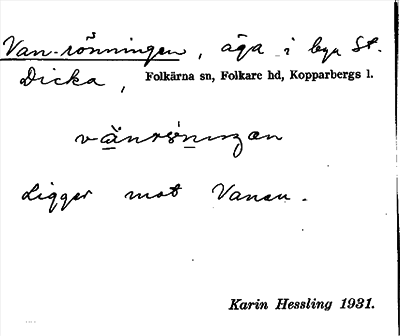 Van-rönningen, äga i bya St.
Dicka, Folkärna sn, Folkare hd, Kopparbergs l.
Ligger mot Vanen.
Karin Hessling 1931.